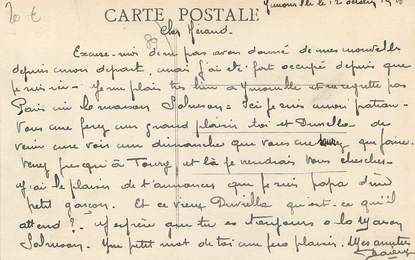 20 €
CARTE POSTALE
Ymonville le 12 octobre
Cher Méraud.
Excuse-moi de ne pas avoir donné de mes nouvelles
depuis mon départ, mais j'ai été fort occupé depuis que
je suis ici - Je me plais très bien à Ymonville et ne regrette pas
Paris ni la maison Salmson - Ici je suis mon patron -
Vous me ferez un grand plaisir toi et Duvilla de
venir me voir un dimanche que vous ne saurez que faire.
Venez jusqu'à Toury et là je viendrais vous chercher -
J'ai le plaisir de t'annoncer que je suis papa d'un
petit garçon. Et ce vieux Duvilla qu'est-ce qu'il
attend ? - J'espère que tu es toujours à la maison
Salmson. Un petit mot de toi me fera plaisir. Mes amitiés